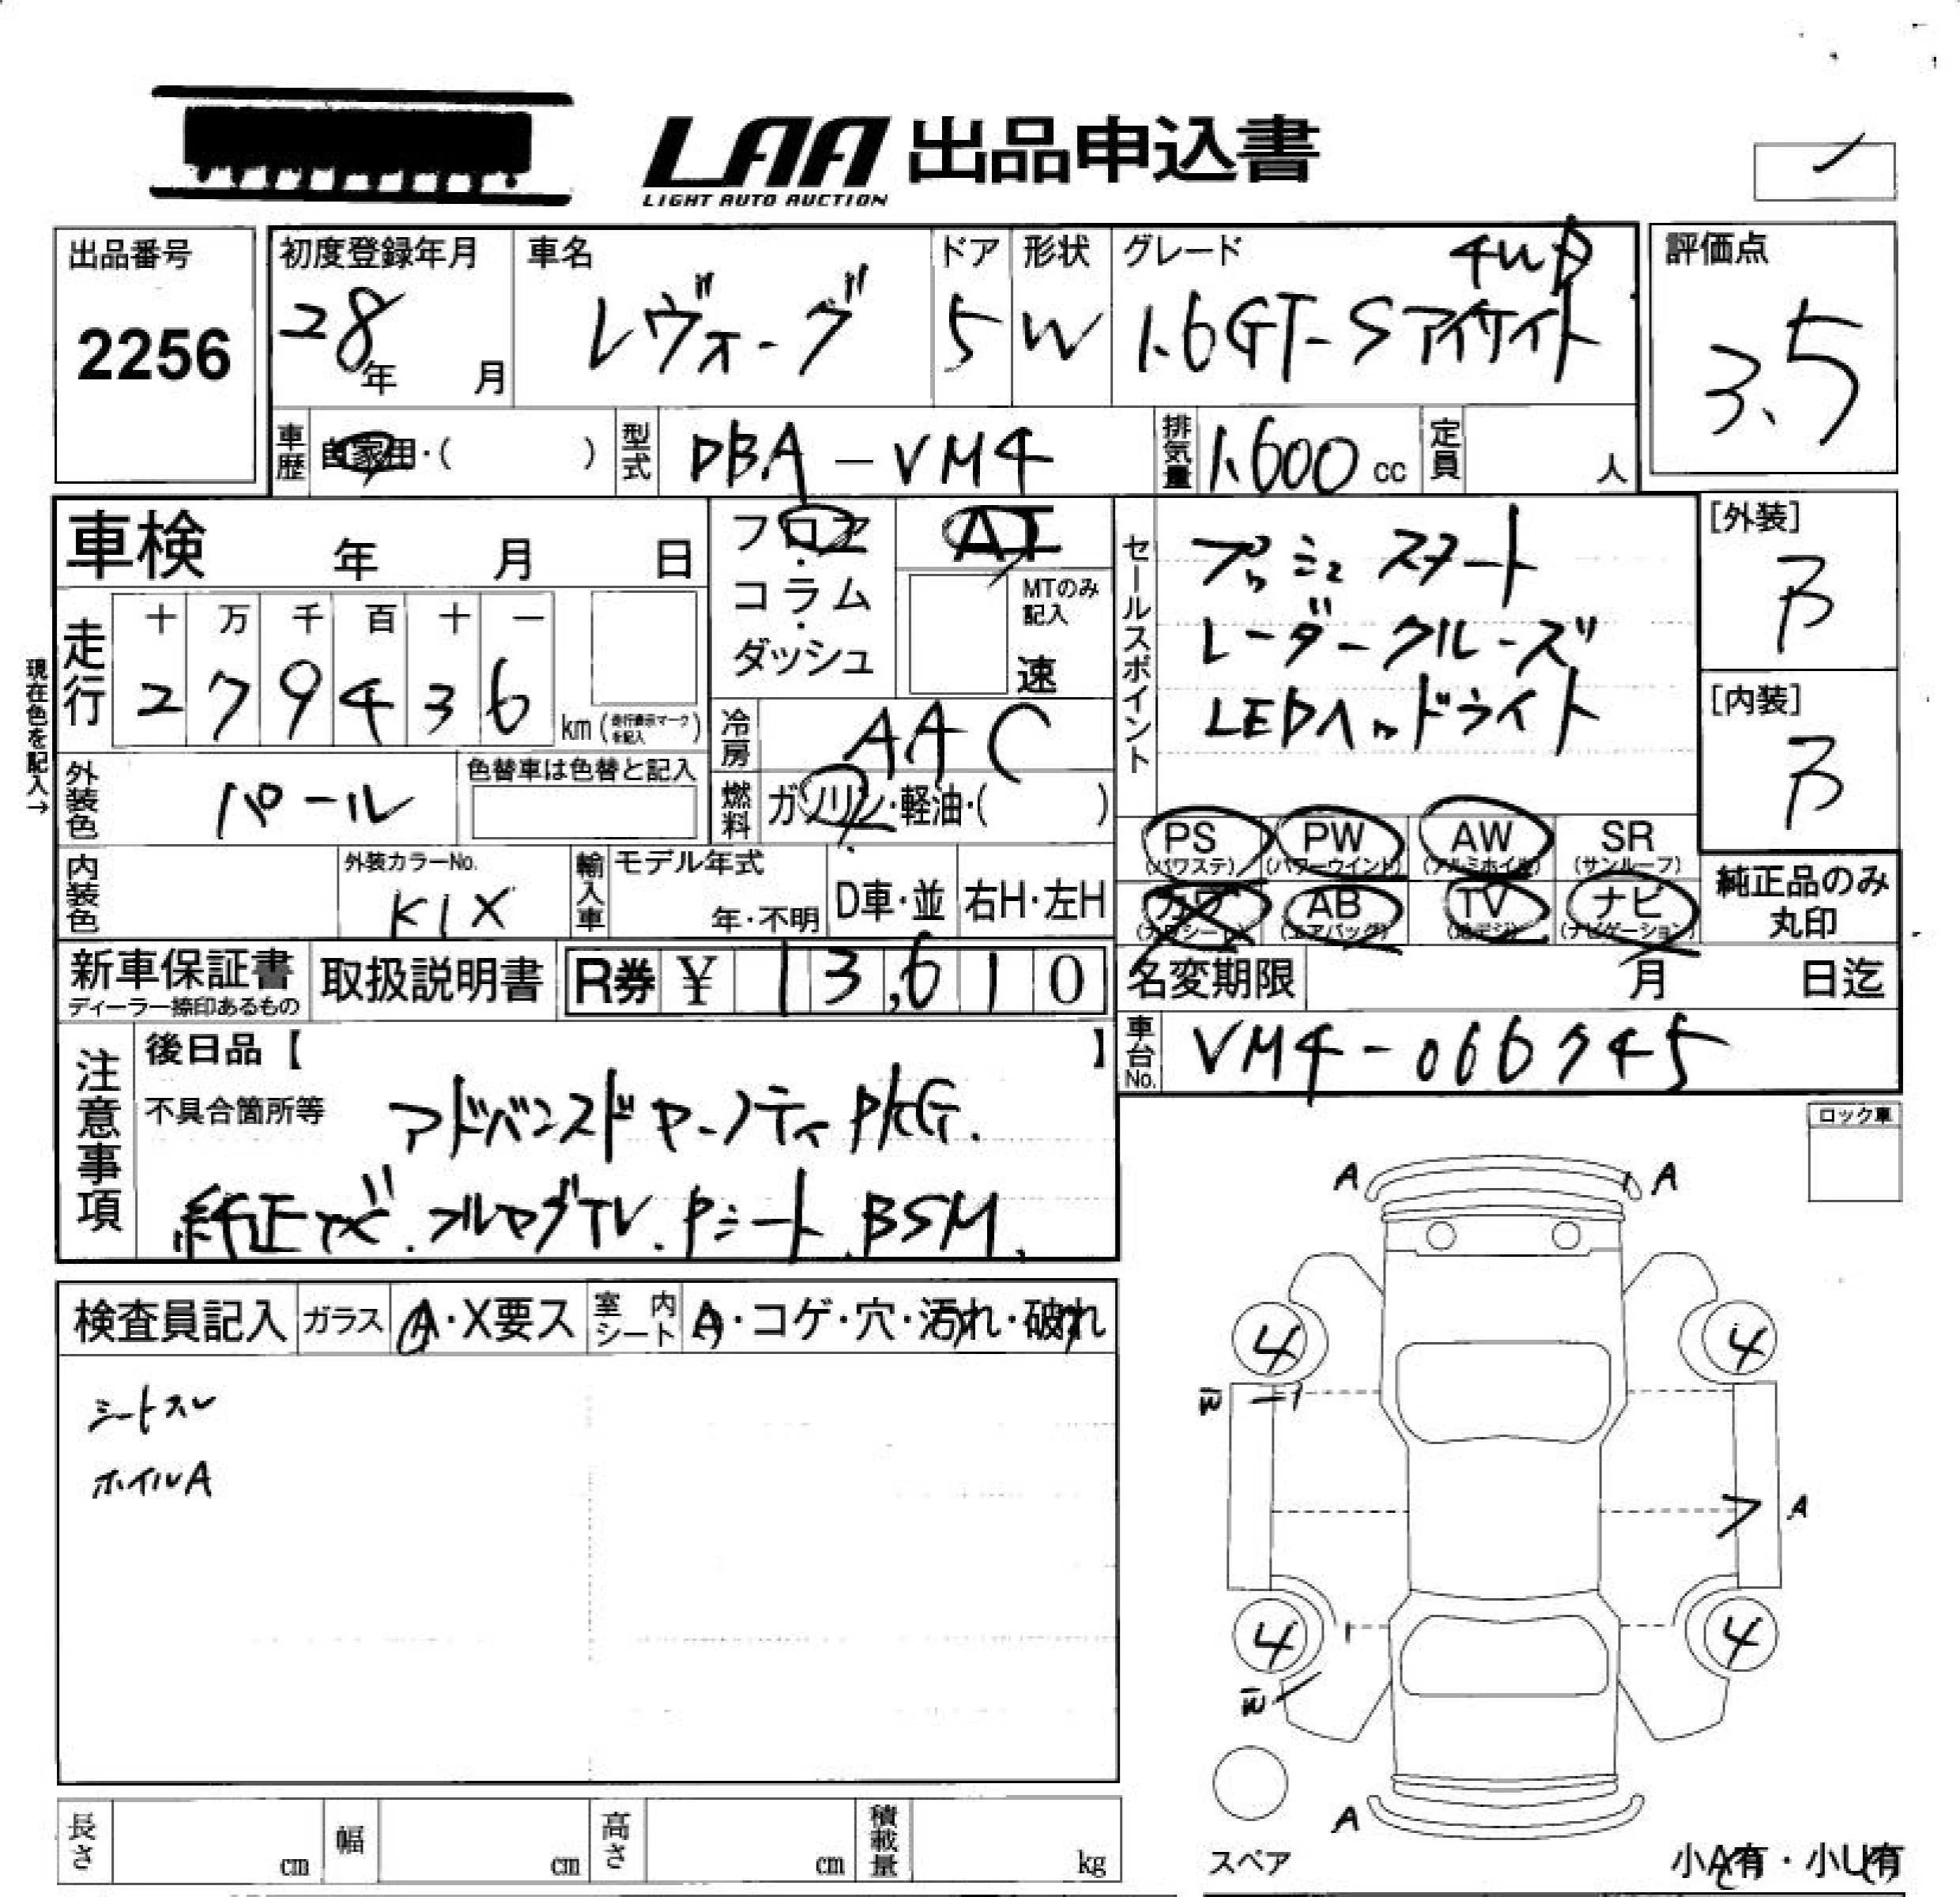 LAA 出品申込書
LIGHT AUTO AUCTION
出品番号
2256
初度登録年月
28年 月
車名
レヴォーグ
ドア
5
形状
W
グレード
4WD
1.6GT-Sアイサイト
評価点
3.5
車歴
自家用・( )
型式
DBA-VM4
排気量
1.600cc
定員
人
車検 年 月 日
フロア・コラム・ダッシュ
AT
MTのみ記入
速
セールスポイント
プッシュスタート
レーダークルーズ
LEDヘッドライト
[外装]
B
[内装]
B
現在色を記入→
走行
十 万 千 百 十 一
2 7 9 4 3 6
km(走行表示マークを記入)
冷房
AAC
外装色
パール
色替車は色替と記入
燃料
ガソリン・軽油・( )
PS
(パワステ)
PW
(パワーウインド)
AW
(アルミホイル)
SR
(サンルーフ)
内装色
外装カラーNo.
K1X
輸入車
モデル年式
年・不明
D車・並
右H・左H
カワ
(カワシート)
AB
(エアバッグ)
TV
(地デジ)
ナビ
(ナビゲーション)
純正品のみ丸印
新車保証書
ディーラー捺印あるもの
取扱説明書
R券 ¥ 13,610
名変期限
月 日迄
注意事項
後日品【 】
車台No.
VM4-066745
不具合箇所等
アドバンスドセーフティPKG.
純正ナビ.フルセグTV.Pシート.BSM.
ロック車
A A
検査員記入
ガラス
A・X要ス
室内シート
A・コゲ・穴・汚れ・破れ
シートスレ
ホイルA
4 4
W
A
4 4
W
A
スペア
長さ
cm
幅
cm
高さ
cm
積載量
kg
小A有・小U有